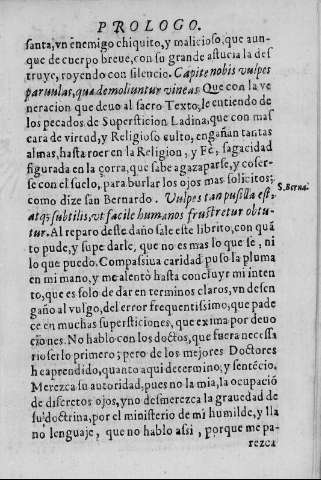 PROLOGO.
santa, vn enemigo chiquito, y malicioso, que aun-
que de cuerpo breue, con su grande astucia la des
truye, royendo con silencio. Capite nobis vulpes
paruulas, quæ demoliuntur vineas Que con la ve
neracion que deuo al sacro Texto, le entiendo de
los pecados de Supersticion Ladina, que con mas
cara de virtud, y Religioso culto, engañan tantas
almas, hasta roer en la Religion, y Fè, sagacidad
figurada en la çorra, que sabe agazaparse, y coser-
se con el suelo, para burlar los ojos mas solicitos;
como dize san Bernardo. Vulpes tan pusilla est,
S. Berna.
atq; subtilis, vt facile humanos frustretur obtu-
tur. Al reparo deste daño sale este librito, con quã
to pude, y supe darle, que no es mas lo que se, ni
lo que puedo. Compassiua caridad puso la pluma
en mi mano, y me alentò hasta concluyr mi inten
to, que es solo de dar en terminos claros, vn desen
gaño al vulgo, del error frequentissimo, que pade
ce en muchas supersticiones, que exima por deuo
ciones. No hablo con los doctos, que fuera necessa
rio serlo primero; pero de los mejores Doctores
he aprendido, quanto aqui determino, y sentẽcio.
Merezca su autoridad, pues no la mia, la ocupaciõ
de discretos ojos, y no desmerezca la grauedad de
su doctrina, por el ministerio de mi humilde, y lla
no lenguaje, que no hablo assi, porque me pa-
rezca